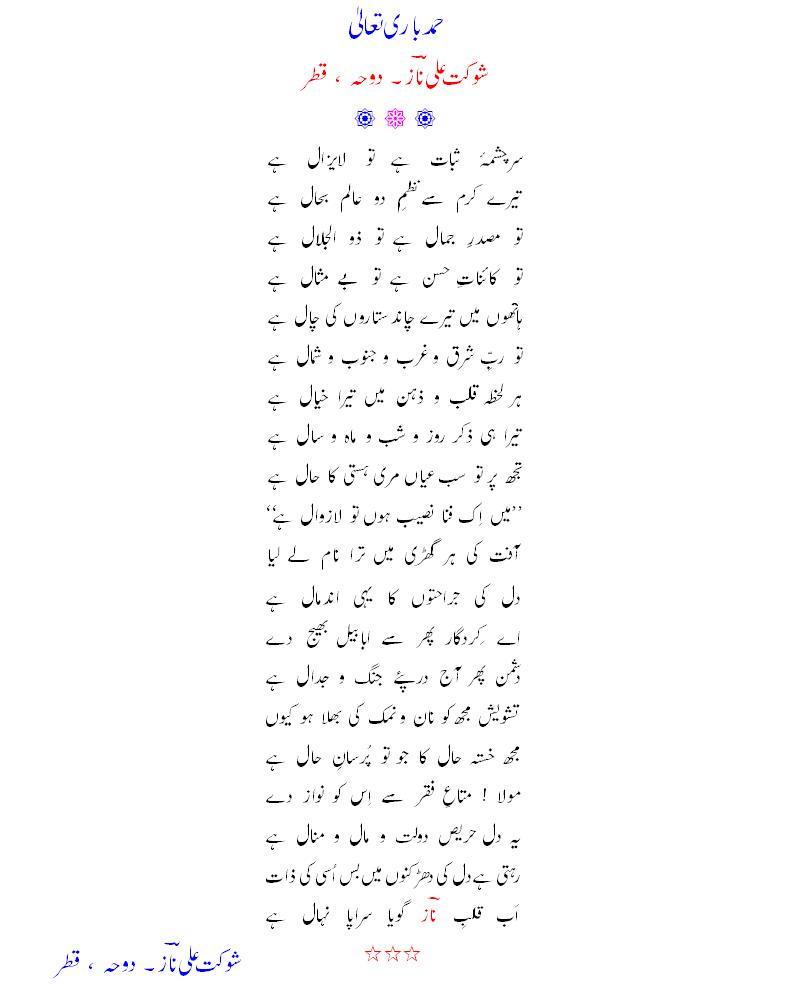 حمد باری تعالیٰ
شوکت علی نازؔ ۔ دوحہ ، قطر
سرچشمۂ ثبات ہے تو لایزال ہے
تیرے کرم سے نظمِ دو عالم بحال ہے
تو مصدرِ جمال ہے تو ذو الجلال ہے
تو کائناتِ حسن ہے تو بے مثال ہے
ہاتھوں میں تیرے چاند ستاروں کی چال ہے
تو ربِّ شرق و غرب و جنوب و شمال ہے
ہر لحظہ قلب و ذہن میں تیرا خیال ہے
تیرا ہی ذکر روز و شب و ماہ و سال ہے
تجھ پر تو سب عیاں مری ہستی کا حال ہے
’’میں اِک فنا نصیب ہوں تو لازوال ہے‘‘
آفت کی ہر گھڑی میں ترا نام لے لیا
دل کی جراحتوں کا یہی اندمال ہے
اے کِردگار پھر سے ابابیل بھیج دے
دشمن پھر آج درپئے جنگ و جدال ہے
تشویش مجھ کو نان و نمک کی بھلا ہو کیوں
مجھ خستہ حال کا جو تو پُرسانِ حال ہے
مولا ! متاعِ فقر سے اِس کو نواز دے
یہ دل حریص دولت و مال و منال ہے
رہتی ہے دل کی دھڑکنوں میں بس اُسی کی ذات
اَب قلبِ نازؔ گویا سراپا نہال ہے
شوکت علی نازؔ ۔ دوحہ ، قطر